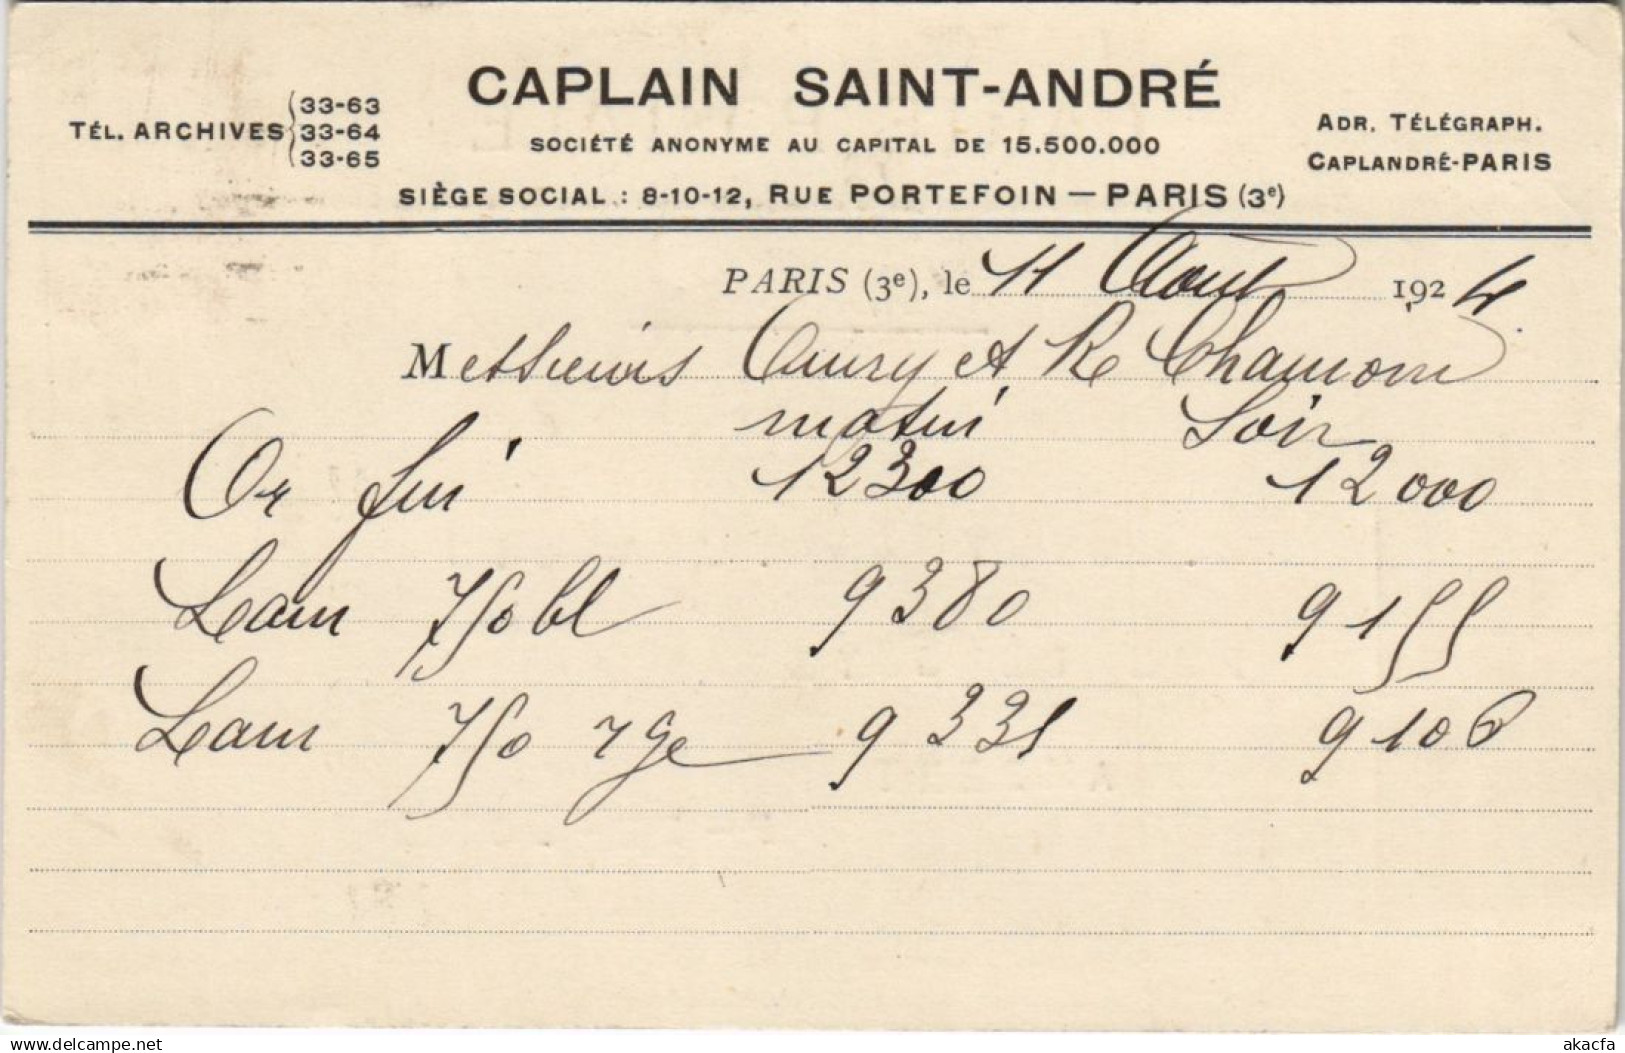 CAPLAIN SAINT-ANDRÉ
TÉL. ARCHIVES 33-63
33-64
33-65
SOCIÉTÉ ANONYME AU CAPITAL DE 15.500.000
ADR. TÉLÉGRAPH.
CAPLANDRÉ-PARIS
SIÈGE SOCIAL : 8-10-12, RUE PORTEFOIN — PARIS (3e)
PARIS (3e), le 11 Aout 1924
Messieurs et Re
matin Soir
Or fin 12300 12000
Lam 750 bl 9380 9155
Lam 750 rge 9331 9106
delcampe.net
akacfa